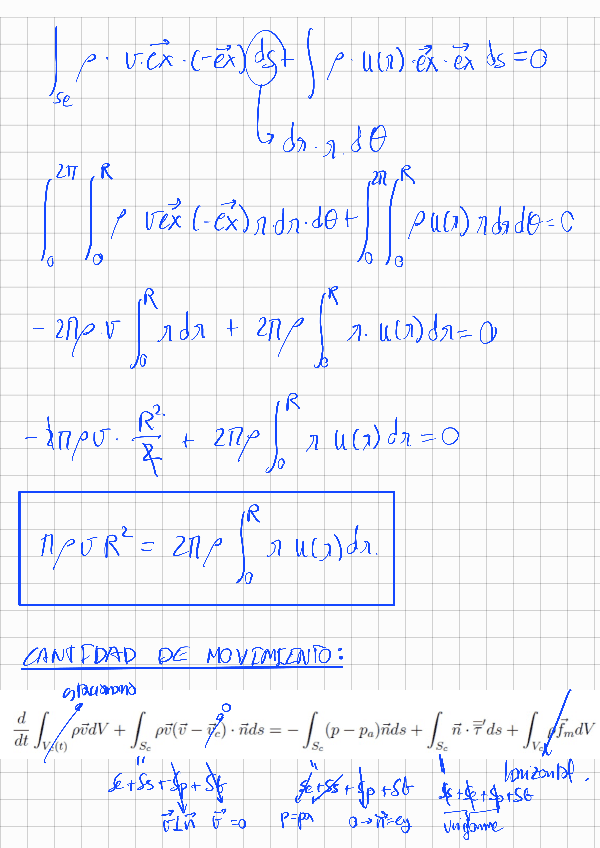 ∫_{Se} ρ · v·e⃗x · (-e⃗x) ds + ∫ ρ · u(r) · e⃗x · e⃗x ds = 0
↳ dr · r · dθ
∫_0^{2π} ∫_0^R ρ v e⃗x (-e⃗x) r dr · dθ + ∫_0^{2π} ∫_0^R ρ u(r) r dr dθ = 0
- 2πρ · v ∫_0^R r dr + 2πρ ∫_0^R r · u(r) dr = 0
- 2πρv · R²/2 + 2πρ ∫_0^R r u(r) dr = 0
πρvR² = 2πρ ∫_0^R r u(r) dr.
CANTIDAD DE MOVIMIENTO:
estacionario
0
d/dt ∫_{V_c(t)} ρv⃗dV + ∫_{S_c} ρv⃗(v⃗ - v⃗_c) · n⃗ds = - ∫_{S_c} (p - p_a)n⃗ds + ∫_{S_c} n⃗ · τ̿′ds + ∫_{V_c} ρf⃗_m dV
horizontal.
Se + Ss + Sp + St
Se + Ss + Sp + St
+ Sp + St
v⃗⊥n⃗ v⃗ = 0
p = pa
0 → n⃗ = ey
uniforme